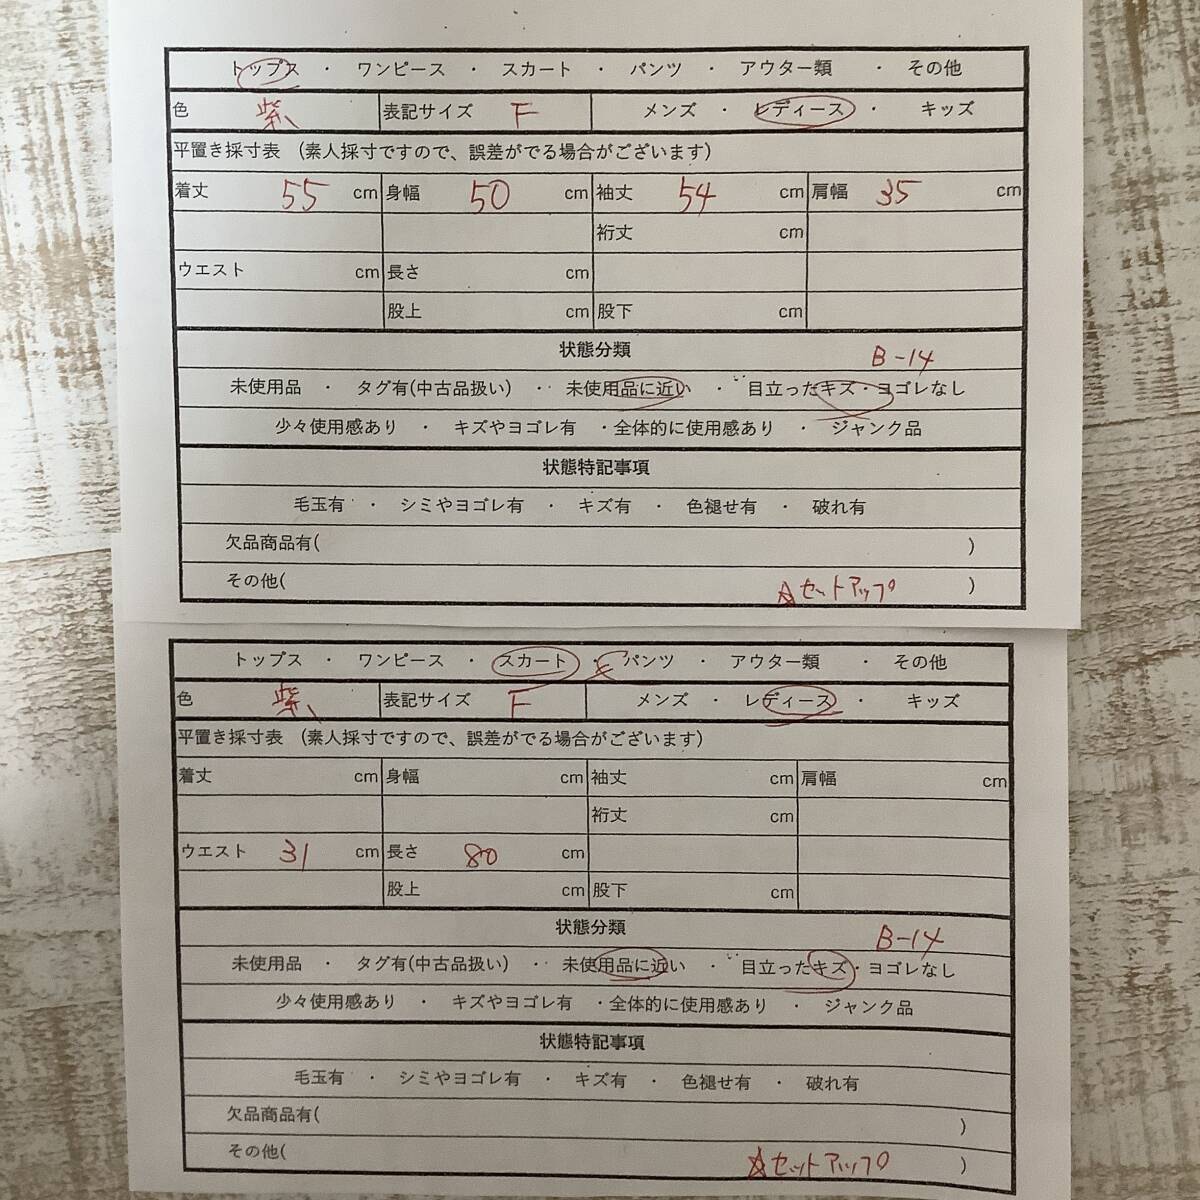 トップス ・ ワンピース ・ スカート ・ パンツ ・ アウター類 ・ その他
色 紫 表記サイズ F メンズ ・ レディース ・ キッズ
平置き採寸表 (素人採寸ですので、誤差がでる場合がございます)
着丈 55 cm 身幅 50 cm 袖丈 54 cm 肩幅 35 cm
裄丈 cm
ウエスト cm 長さ cm
股上 cm 股下 cm
状態分類 B-14
未使用品 ・ タグ有(中古品扱い) ・ 未使用品に近い ・ 目立ったキズ・ヨゴレなし
少々使用感あり ・ キズやヨゴレ有 ・全体的に使用感あり ・ ジャンク品
状態特記事項
毛玉有 ・ シミやヨゴレ有 ・ キズ有 ・ 色褪せ有 ・ 破れ有
欠品商品有( )
その他( ☆セットアップ )
トップス ・ ワンピース ・ スカート ・ パンツ ・ アウター類 ・ その他
色 紫 表記サイズ F メンズ ・ レディース ・ キッズ
平置き採寸表 (素人採寸ですので、誤差がでる場合がございます)
着丈 cm 身幅 cm 袖丈 cm 肩幅 cm
裄丈 cm
ウエスト 31 cm 長さ 80 cm
股上 cm 股下 cm
状態分類 B-14
未使用品 ・ タグ有(中古品扱い) ・ 未使用品に近い ・ 目立ったキズ・ヨゴレなし
少々使用感あり ・ キズやヨゴレ有 ・全体的に使用感あり ・ ジャンク品
状態特記事項
毛玉有 ・ シミやヨゴレ有 ・ キズ有 ・ 色褪せ有 ・ 破れ有
欠品商品有( )
その他( ☆セットアップ )